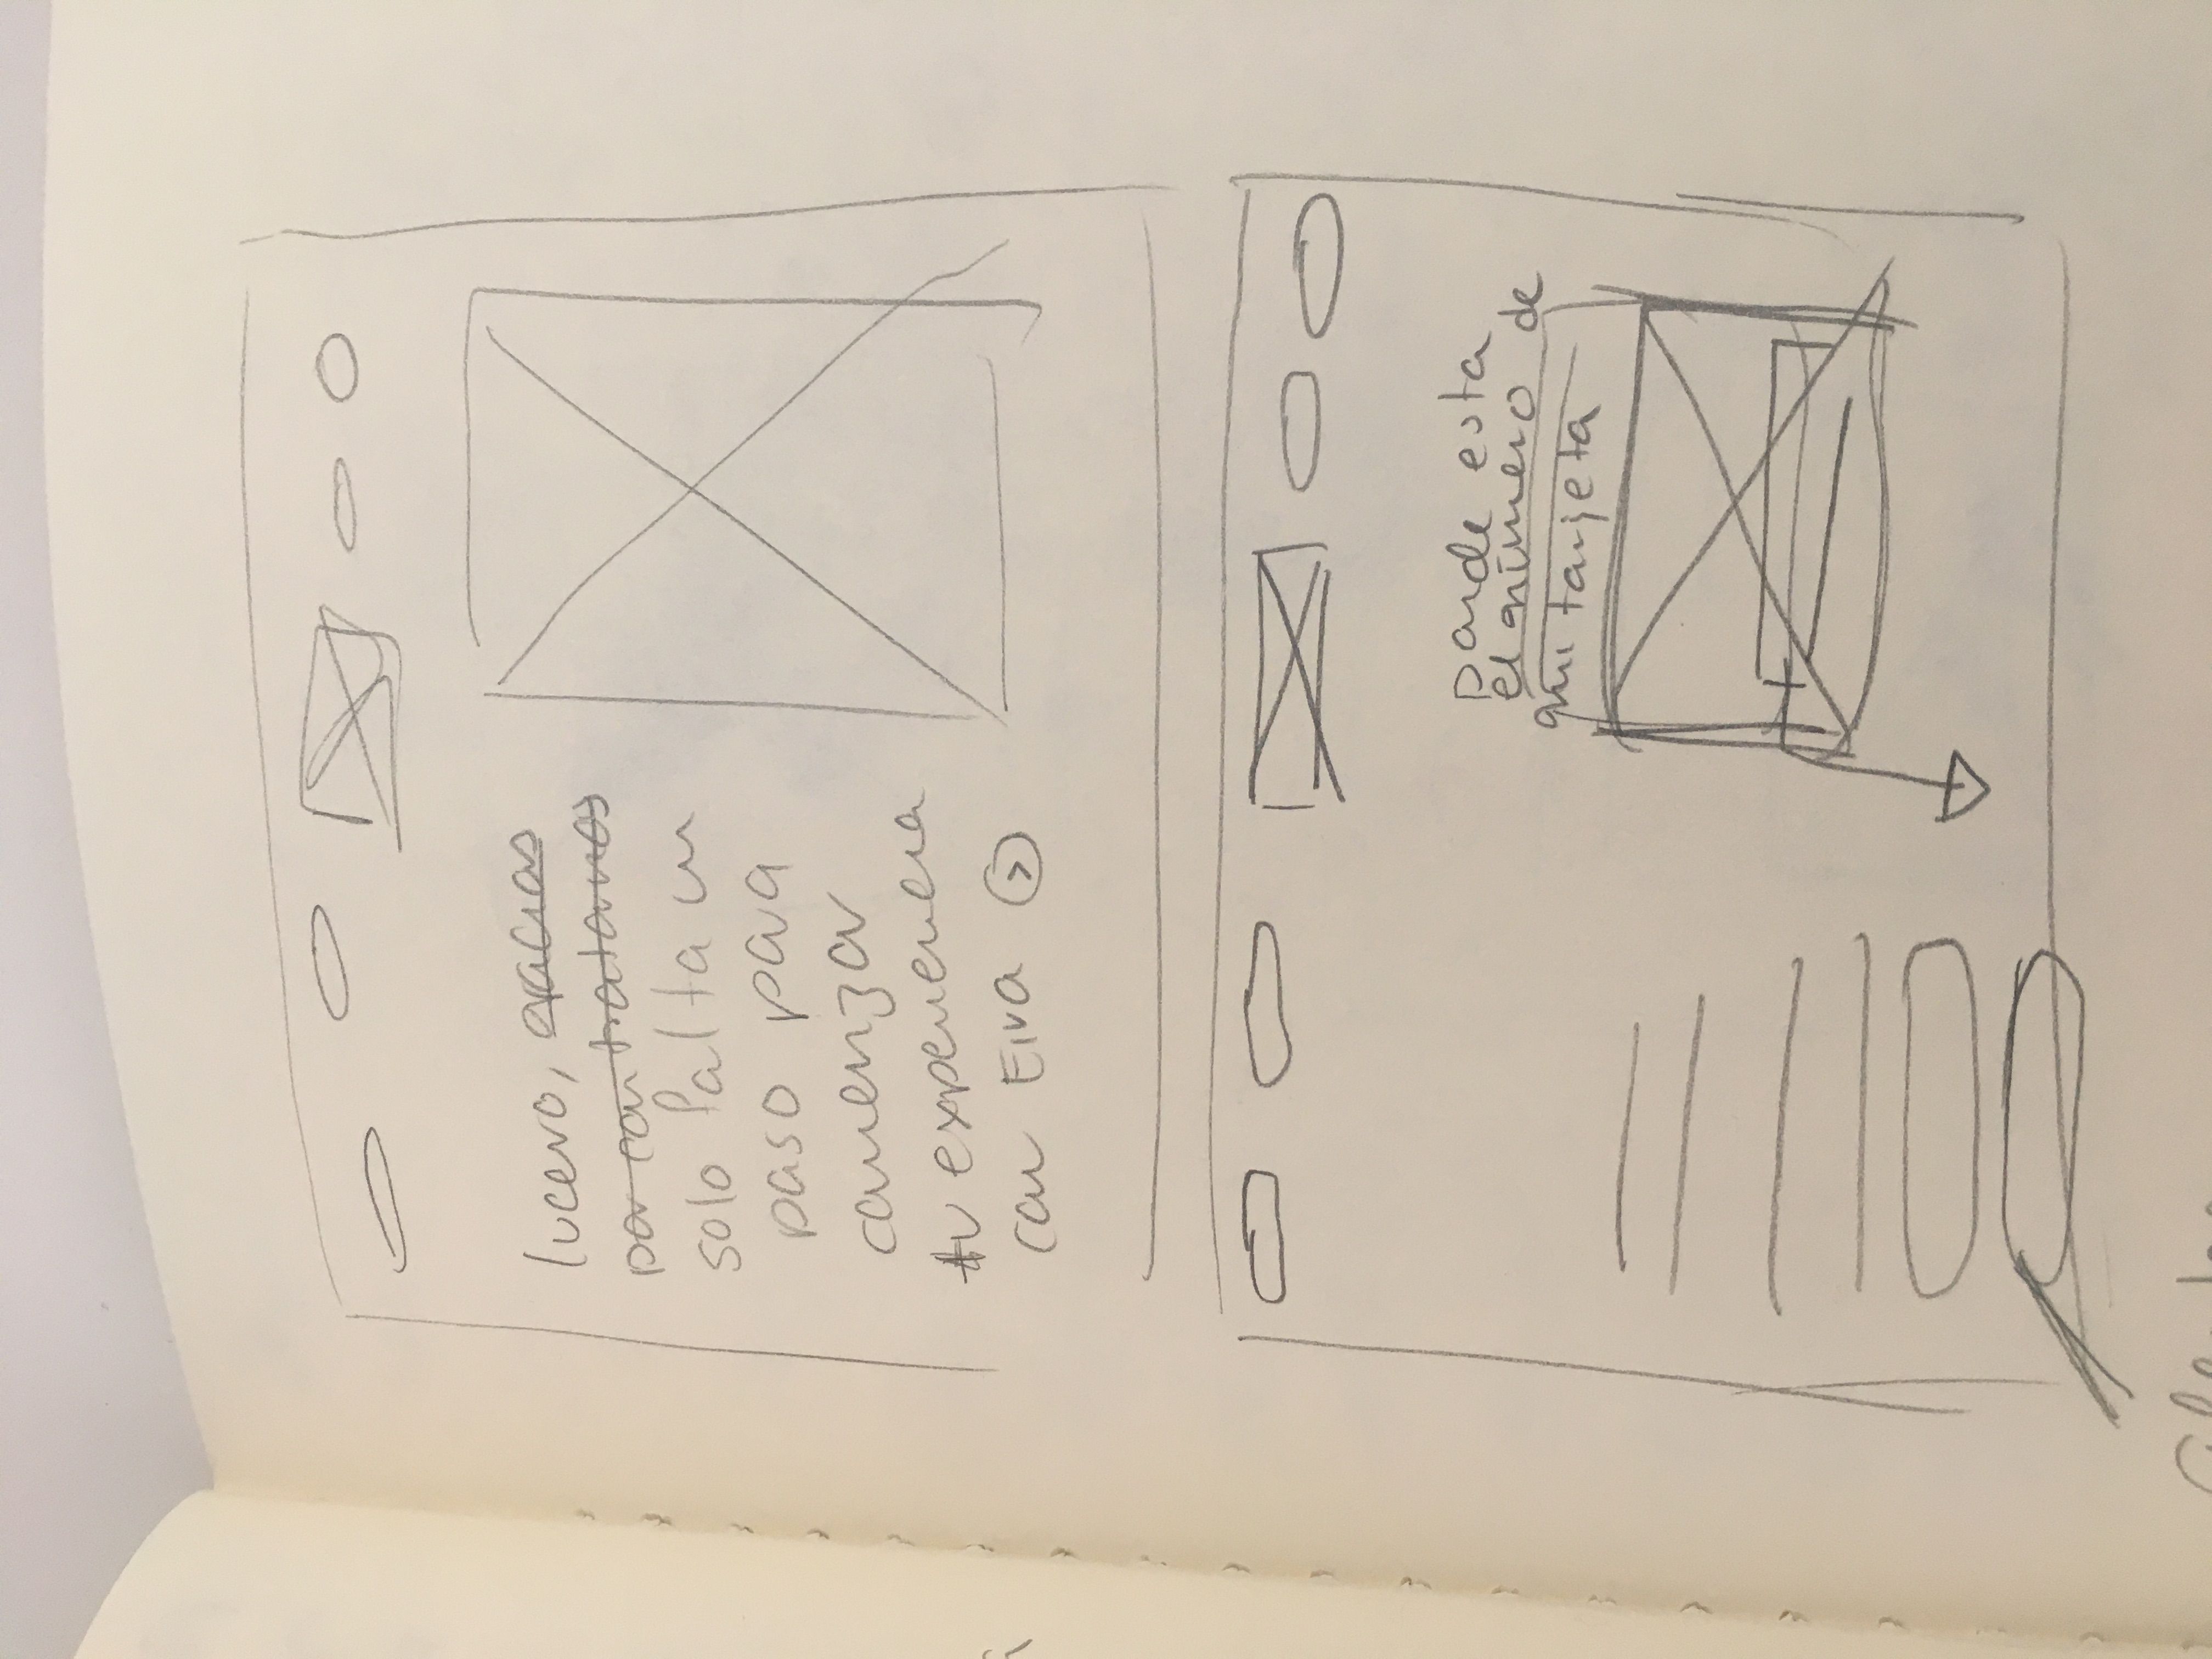 lucero, gracias
por contratarnos
solo falta un
paso para
comenzar
tu experiencia
con Eiva >
Donde esta
el número de
mi tarjeta